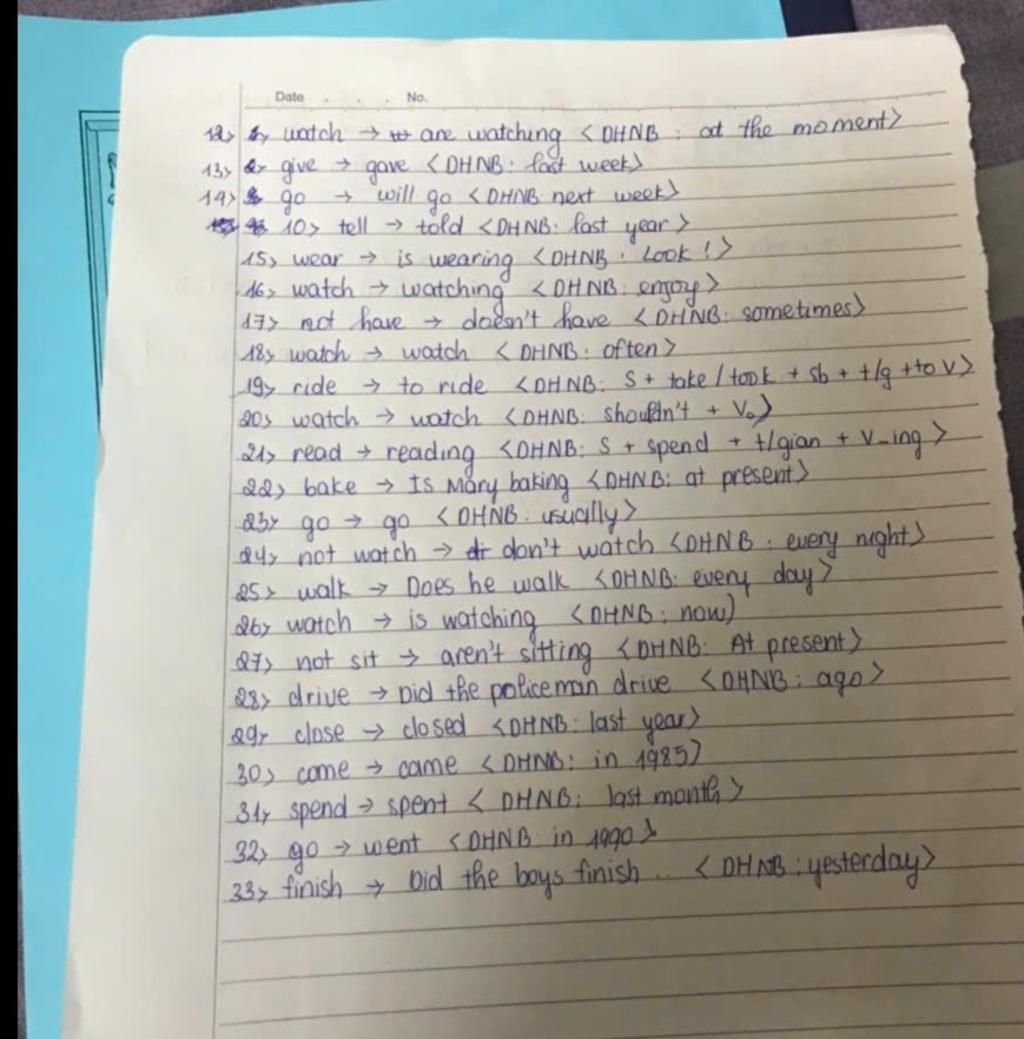 Date . . . No.
12> watch → are watching <DHNB: at the moment>
13> give → gave <DHNB: last week>
14> go → will go <DHNB: next week>
10> tell → told <DHNB: last year>
15> wear → is wearing <DHNB: Look!>
16> watch → watching <DHNB: enjoy>
17> not have → doesn't have <DHNB: sometimes>
18> watch → watch <DHNB: often>
19> ride → to ride <DHNB: S + take/took + sb + t/g + to V>
20> watch → watch <DHNB: shouldn't + V₀>
21> read → reading <DHNB: S + spend + t/gian + V-ing>
22> bake → Is Mary baking <DHNB: at present>
23> go → go <DHNB: usually>
24> not watch → don't watch <DHNB: every night>
25> walk → Does he walk <DHNB: every day>
26> watch → is watching <DHNB: now>
27> not sit → aren't sitting <DHNB: At present>
28> drive → Did the policeman drive <DHNB: ago>
29> close → closed <DHNB: last year>
30> come → came <DHNB: in 1985>
31> spend → spent <DHNB: last month>
32> go → went <DHNB: in 1990>
33> finish → Did the boys finish .. <DHNB: yesterday>